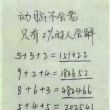 动脑不会老
只有2%的人会解
5+3+2=151022
9+2+4=183652
8+6+3=482466
5+4+5=202541